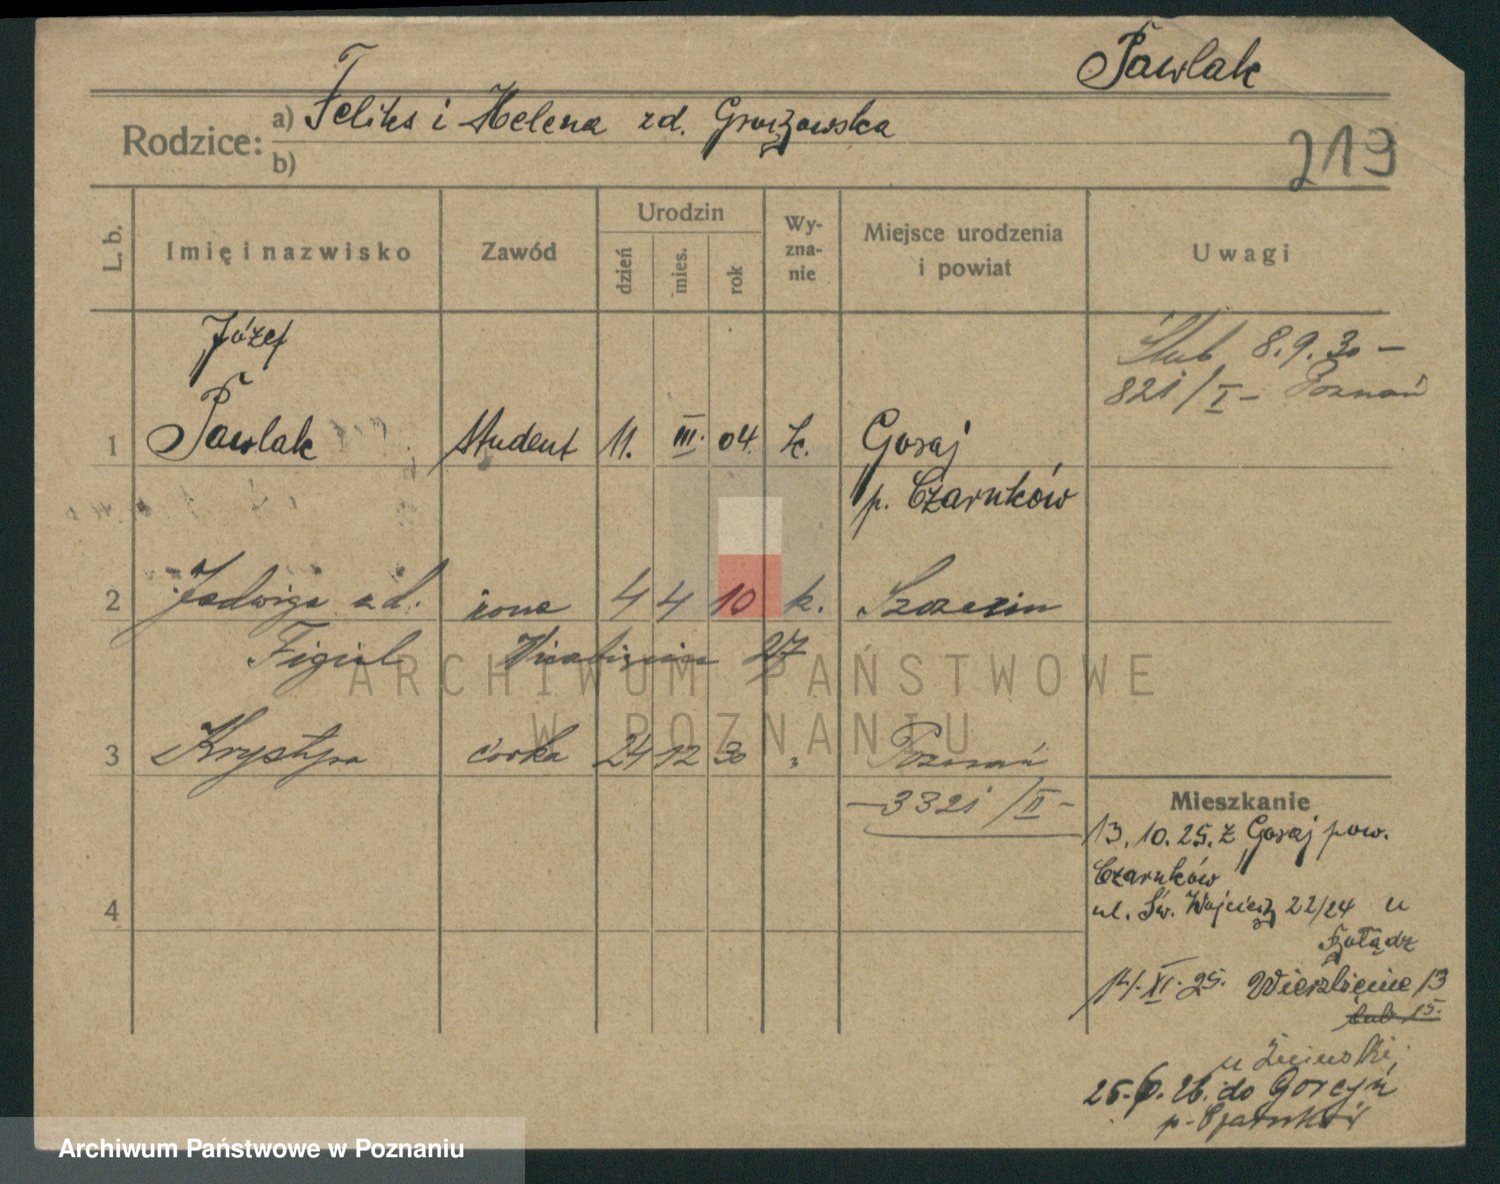 Pawlak
Rodzice: a) Feliks i Helena zd. Grorzowska
b)
219
L. b.
Imię i nazwisko
Zawód
Urodzin
dzień
mies.
rok
Wy-
zna-
nie
Miejsce urodzenia
i powiat
Uwagi
Józef
Ślub 8.9.30 –
821/I – Poznań
1 Pawlak student 11. III. 04. k. Goraj
p. Czarnków
2 Jadwiga zd. żona 4 4 10 k. Szczecin
Figiel 27
3 Krystyna córka 24 12 30 " Poznań
– 3321/II –
4
Mieszkanie
13.10.25. z Goraj pow.
Czarnków
ul. Św. Wojciech 22/24 u
14.XI.25. Wierzbięcice 13
lub 15.
u
26. do
p. Czarnków
ARCHIWUM PAŃSTWOWE
W POZNANIU
Archiwum Państwowe w Poznaniu